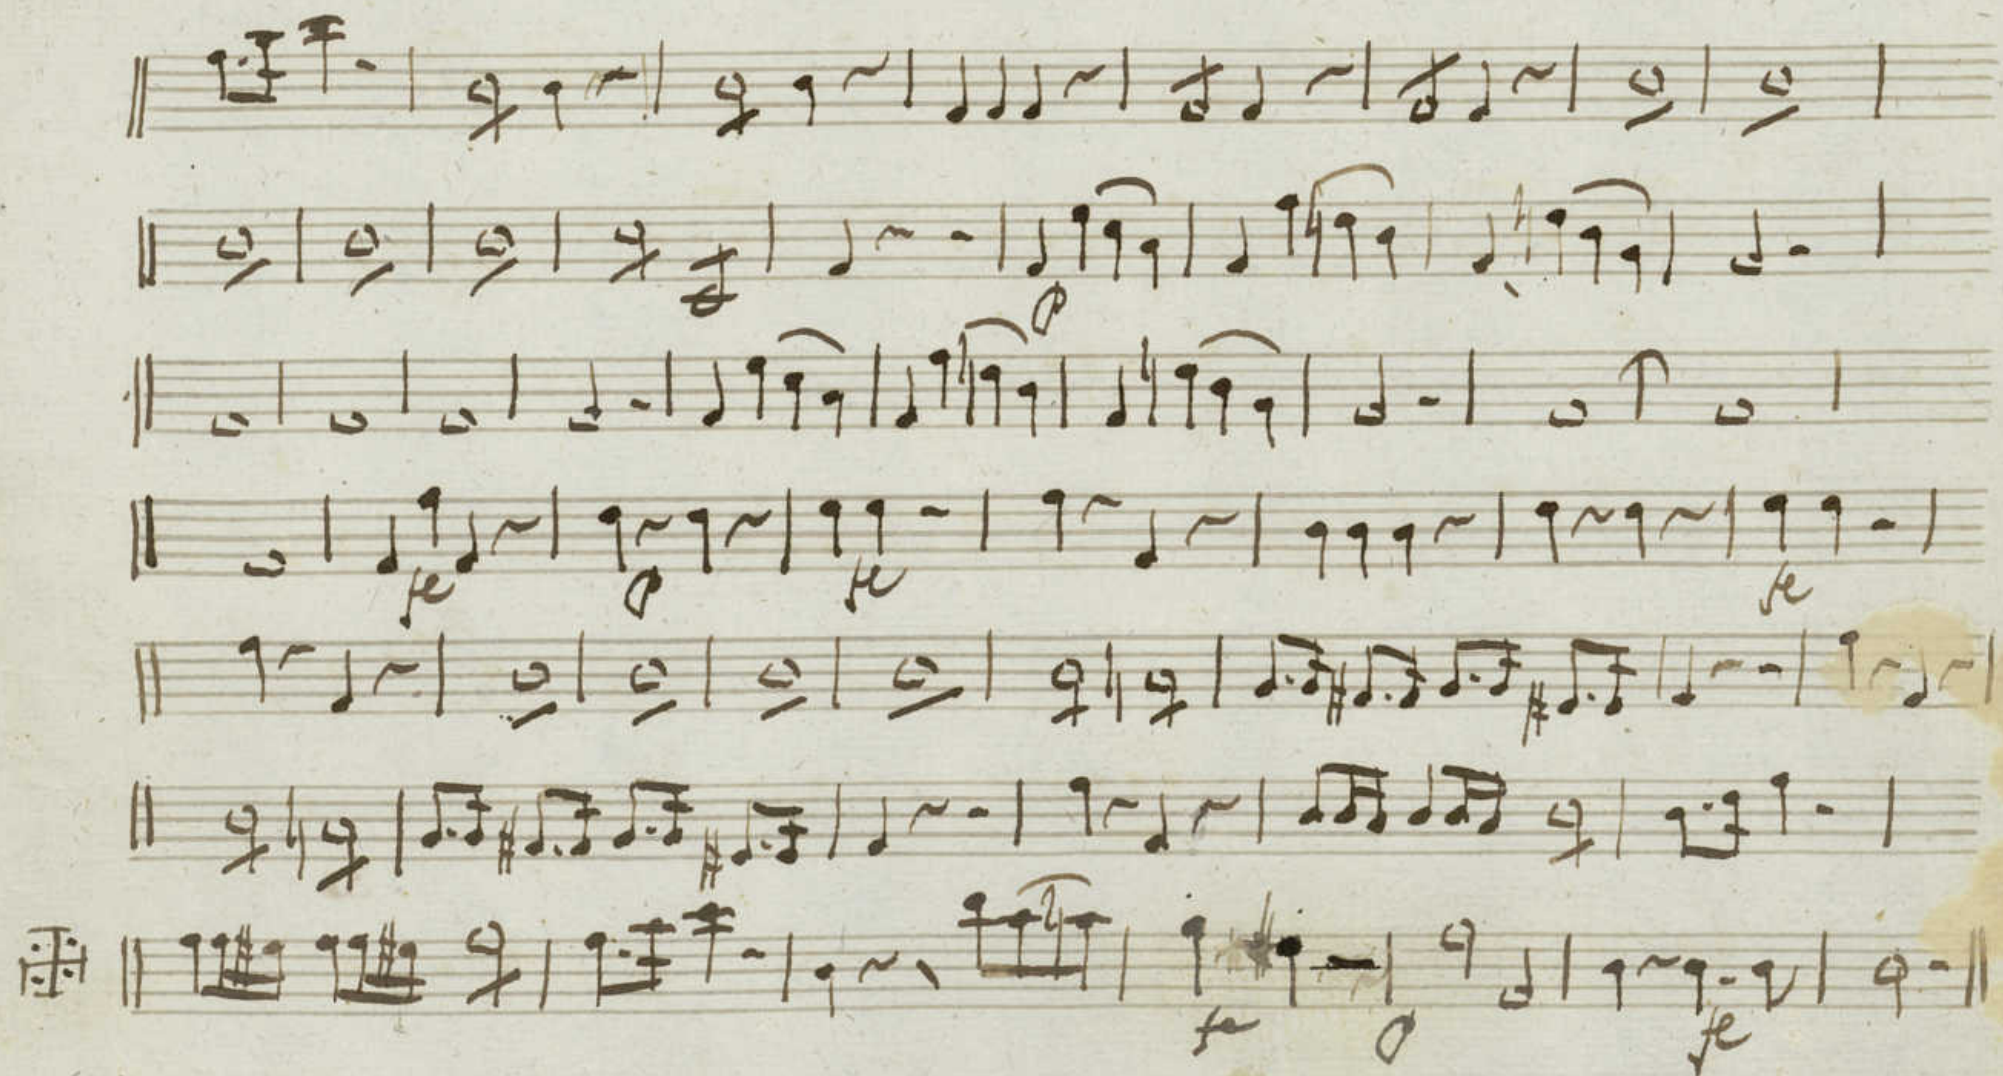 p
fe p fe fe
fe p fe